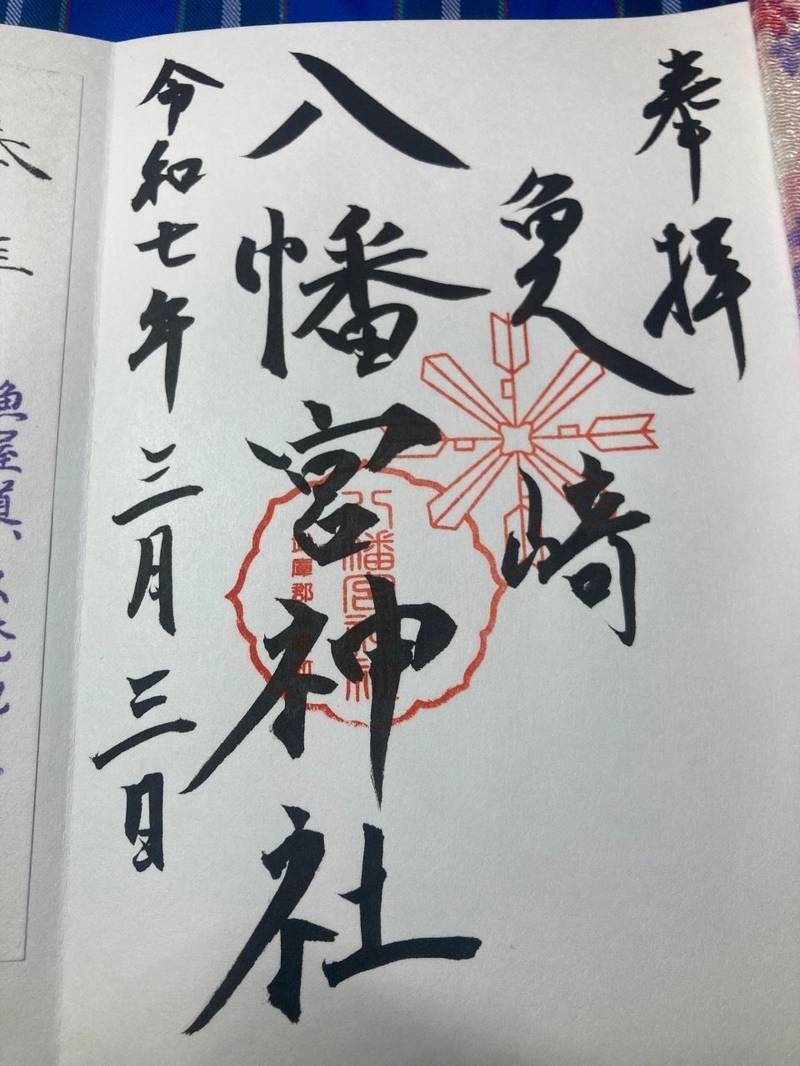 奉拝
魚崎
八幡宮神社
令和七年三月三日
八幡宮神社
庫郡
魚屋道、